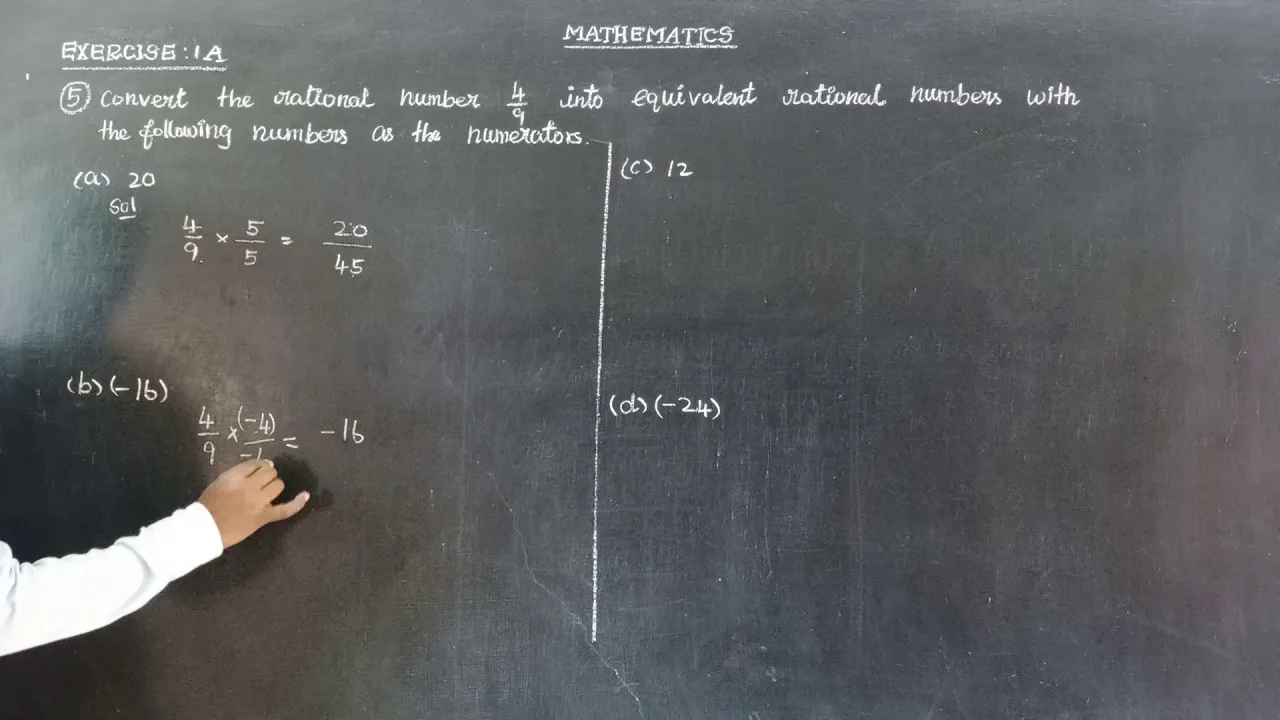 MATHEMATICS
EXERCISE : 1A
⑤ Convert the rational number 4/9 into equivalent rational numbers with
the following numbers as the numerators.
(a) 20
Sol
4/9 × 5/5 = 20/45
(b) (-16)
4/9 × (-4)/ = -16
(c) 12
(d) (-24)